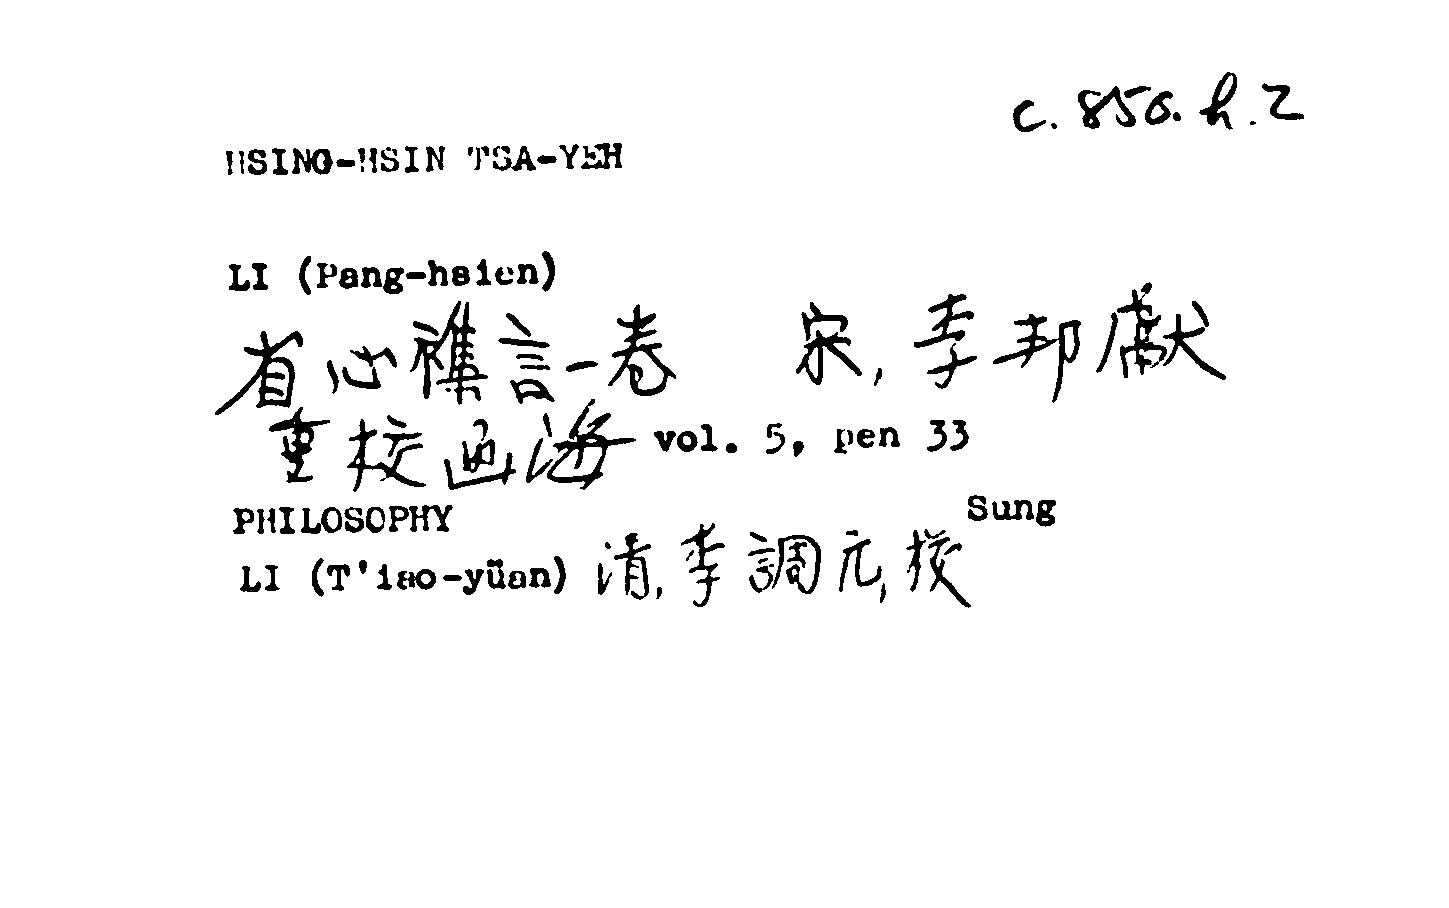 c. 856. h. 2
HSING-HSIN TSA-YEH
LI (Pang-hsien)
省心襍言一卷 宋, 李邦獻
重校函海 vol. 5, pen 33
PHILOSOPHY Sung
LI (T'iao-yüan) 清, 李調元, 校